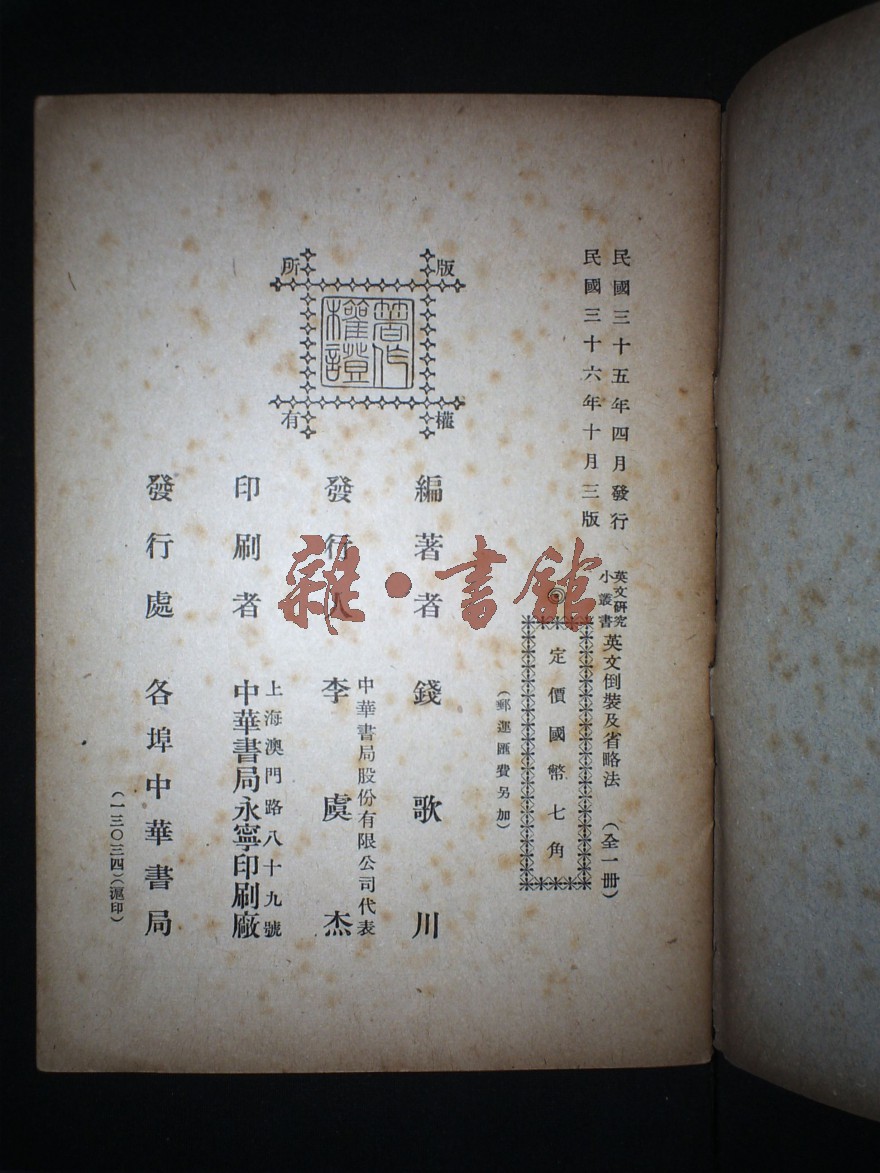 民國三十五年四月發行
民國三十六年十月三版
英文研究
小叢書
英文倒裝及省略法（全一冊）
◎定價國幣七角
（郵運匯費另加）
版權所有
著作權證
編著者 錢歌川
發行人 李虞杰
中華書局股份有限公司代表
印刷者
上海澳門路八十九號
中華書局永寧印刷廠
發行處 各埠中華書局
（一三〇三四）（滬印）
雜·書館